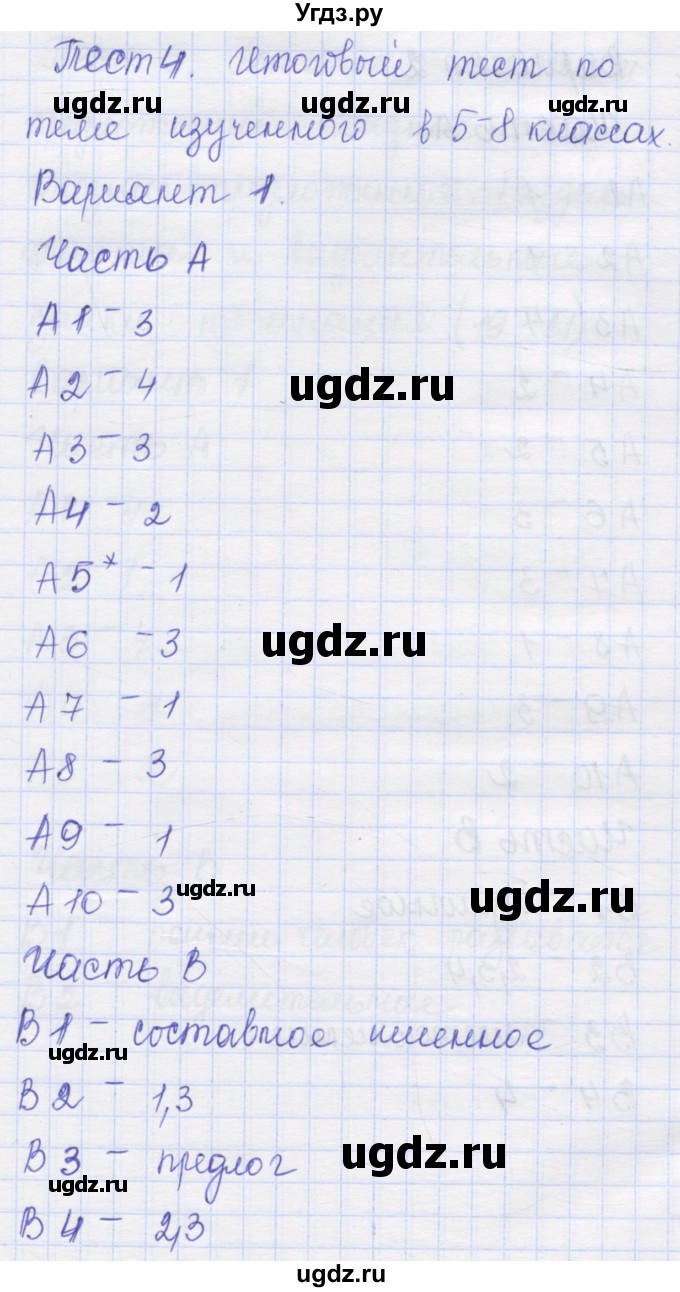 Угдз.ру
Тест 4. Итоговый тест по
ugdz.ru ugdz.ru ugdz.ru
теме изученного в 5-8 классах.
Вариант 1.
Часть А
А1 - 3
А2 - 4
ugdz.ru
А3 - 3
А4 - 2
А5* - 1
А6 - 3
ugdz.ru
А7 - 1
А8 - 3
А9 - 1
ugdz.ru
А10 - 3
ugdz.ru
Часть В
В1 - составное именное
ugdz.ru
В2 - 1,3
В3 - предлог
ugdz.ru
ugdz.ru
В4 - 2,3
ugdz.ru